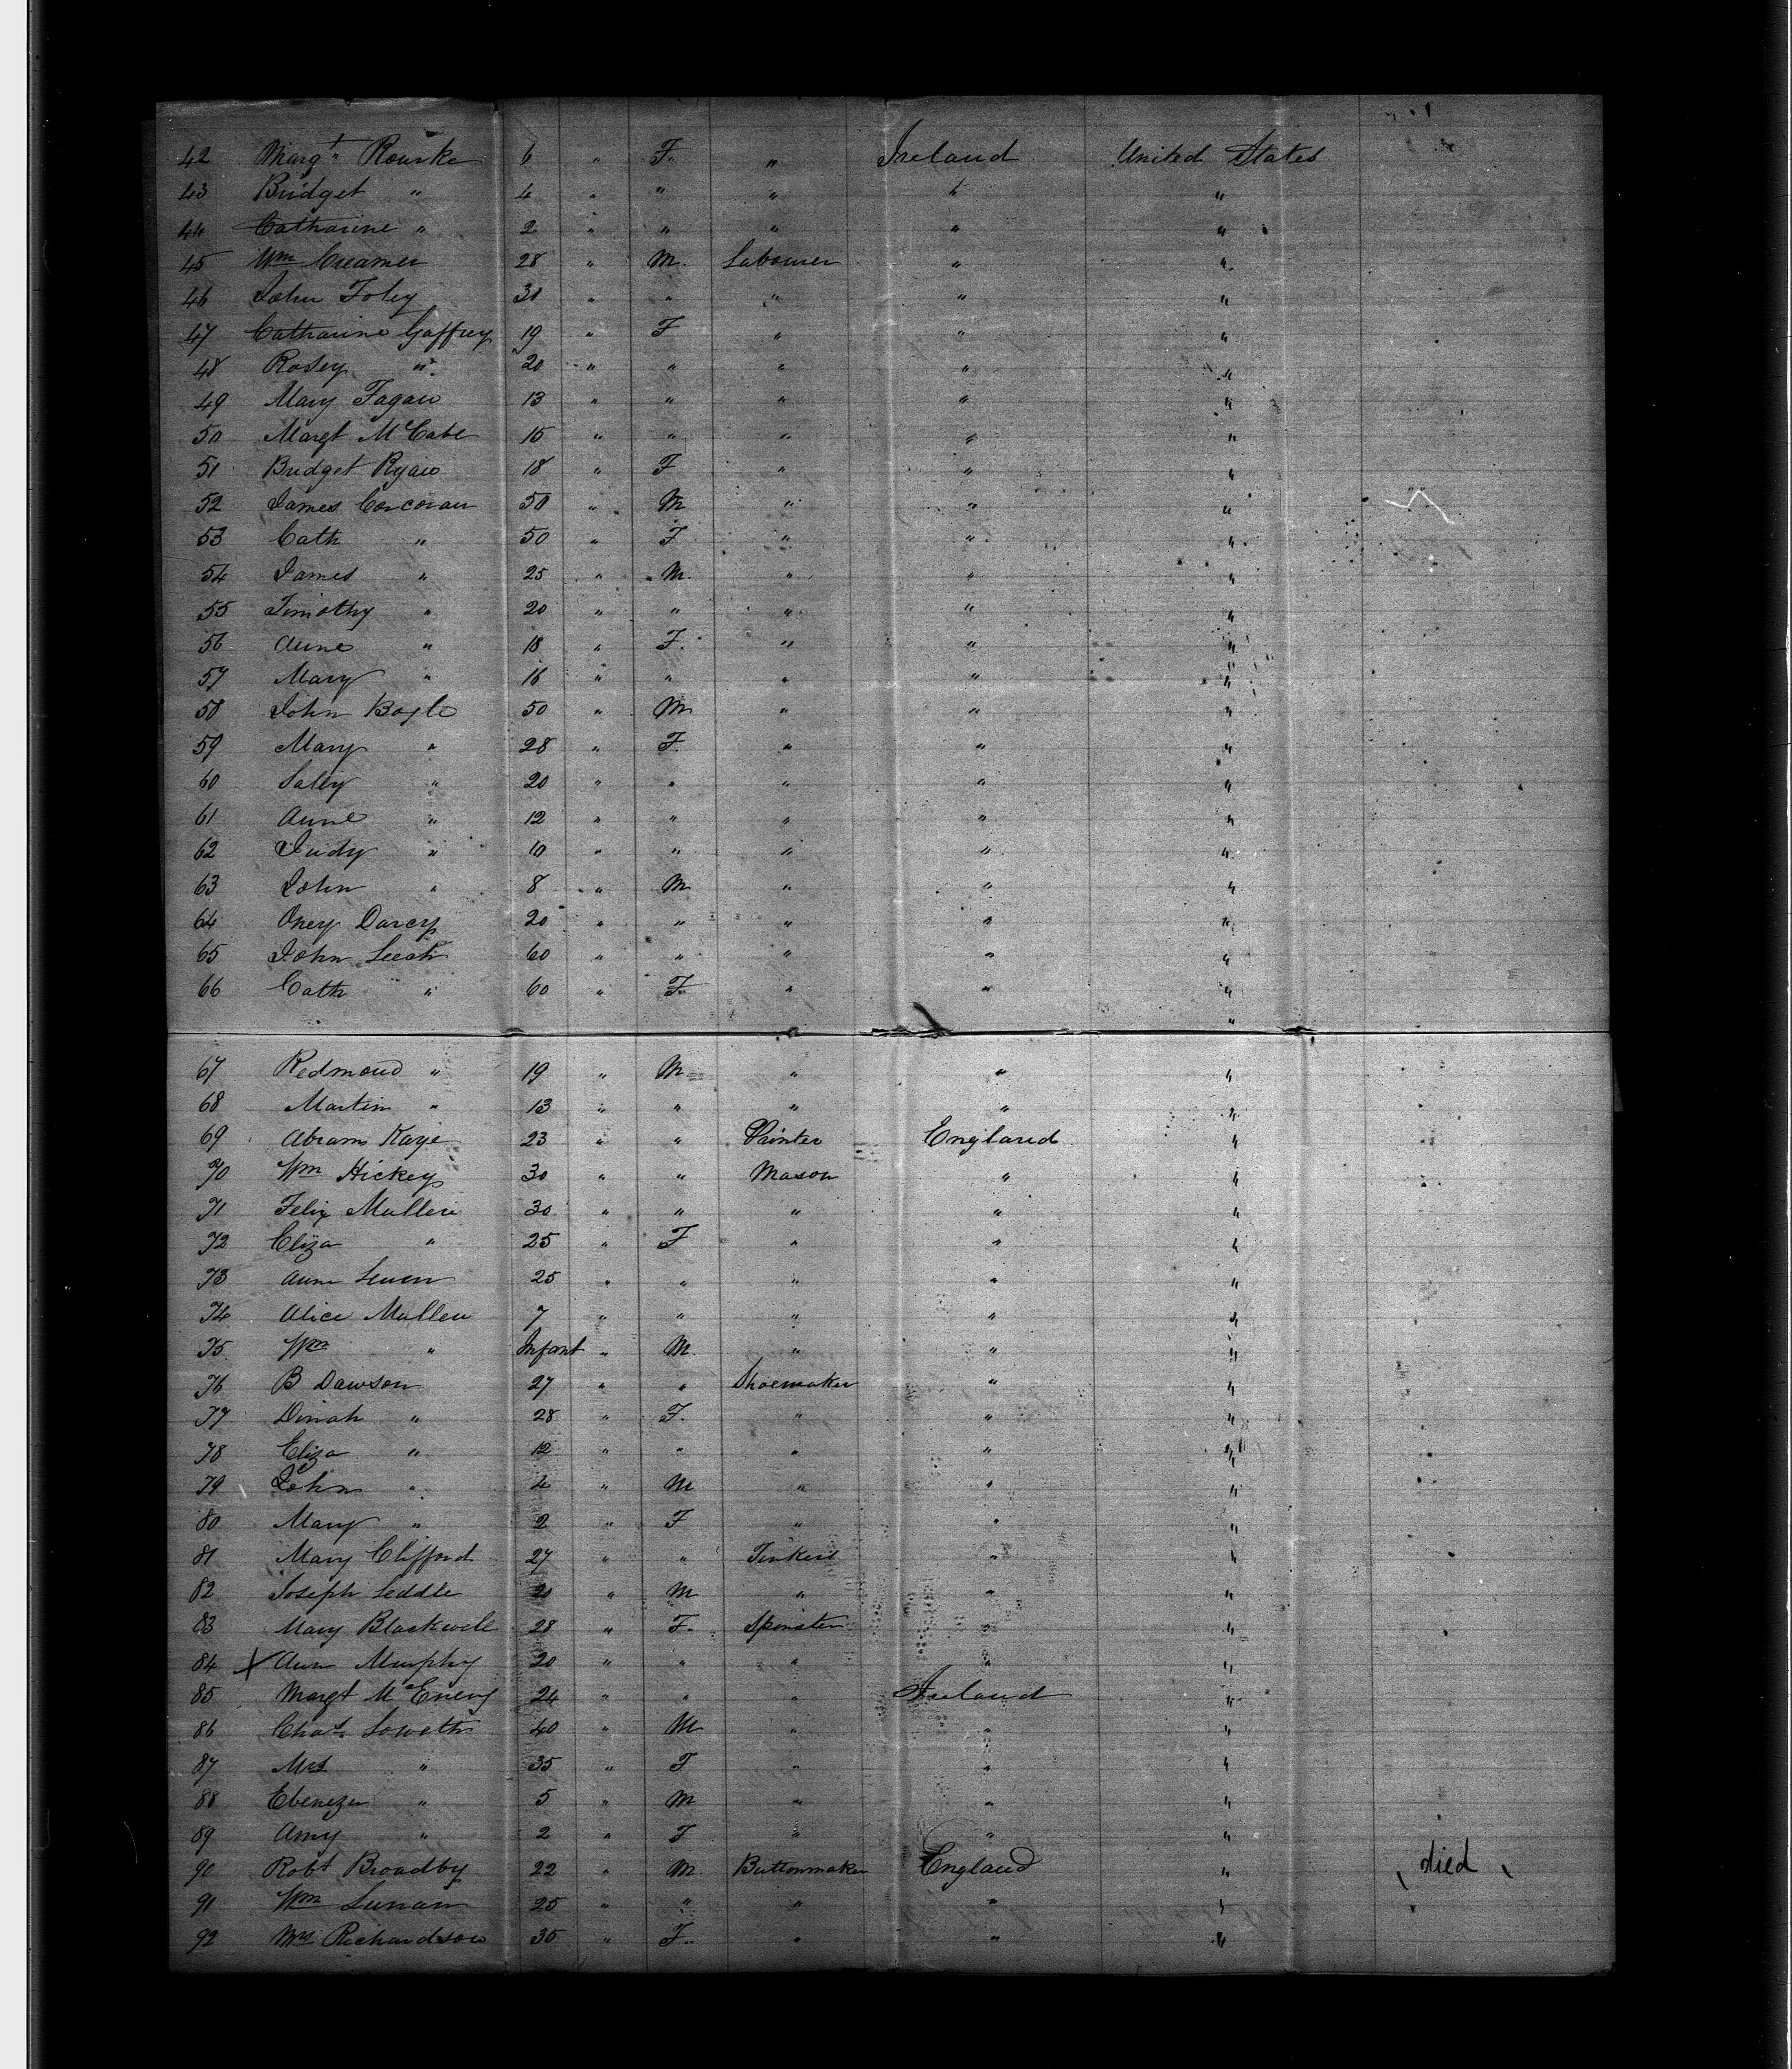 42 Margt Rourke 6 " F " Ireland United States
43 Bridget " 4 " " " " "
44 Catharine " 2 " " " " "
45 Wm Creamer 28 " M. Labourer " "
46 John Foley 30 " " " " "
47 Catharine Gaffrey 19 " F " " "
48 Rosey " 20 " " " " "
49 Mary Fagan 13 " " " " "
50 Margt McCabe 15 " " " " "
51 Bridget Ryan 18 " F " " "
52 James Corcoran 50 " M " " "
53 Cath " 50 " F " " "
54 James " 25 " M. " " "
55 Timothy " 20 " " " " "
56 Anne " 18 " F. " " "
57 Mary " 16 " " " " "
58 John Boyle 50 " M " " "
59 Mary " 28 " F. " " "
60 Sally " 20 " " " " "
61 Anne " 12 " " " " "
62 Judy " 10 " " " " "
63 John " 8 " M " " "
64 Darcy 20 " " " " "
65 John Leech 60 " " " " "
66 Cath " 60 " F " " "
"
67 Redmond " 19 " M " " "
68 Martin " 13 " " " " "
69 Abram Kaye 23 " " Printer England "
70 Wm Hickey 30 " " Mason " "
71 Felix Mullen 30 " " " " "
72 Eliza " 25 " F " " "
73 Anne 25 " " " " "
74 Alice Mullen 7 " " " " "
75 Wm " Infant " M. " " "
76 B Dawson 27 " " Shoemaker " "
77 Dinah " 28 " F. " " "
78 Eliza " 12 " " " " "
79 John " 4 " M " " "
80 Mary " 2 " F " " "
81 Mary Clifford 27 " " " "
82 Joseph Leddle 20 " M " " "
83 Mary Blackwell 28 " F. Spinster " "
84 X Ann Murphy 20 " " " " "
85 Margt McEnery 24 " " " Ireland "
86 Chas Soweth 40 " M " " "
87 Mrs " 35 " F " " "
88 Ebenezer " 5 " M " " "
89 Amy " 2 " F " " "
90 Robt Broadby 22 " M. Buttonmaker England " died
91 Wm Lunan 25 " " " " "
92 Mrs Richardson 35 " F. " " "